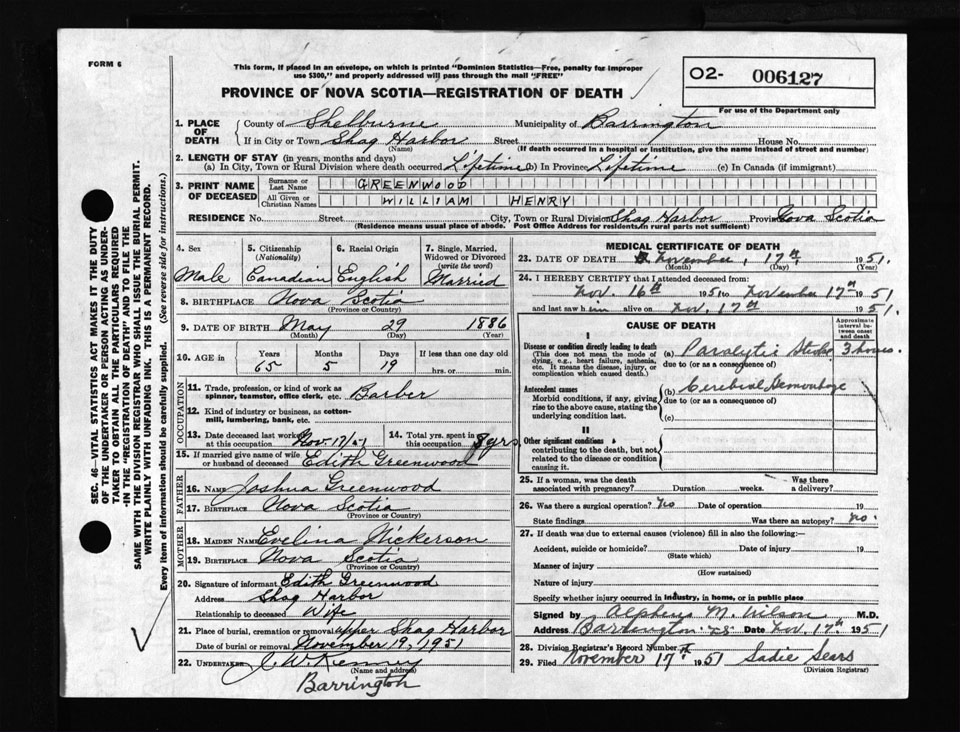 FORM 6
This form, if placed in an envelope, on which is printed "Dominion Statistics—Free, penalty for improper
use $300," and properly addressed will pass through the mail "FREE"
PROVINCE OF NOVA SCOTIA—REGISTRATION OF DEATH
O2- 006127
For use of the Department only
1. PLACE OF DEATH County of Shelburne Municipality of Barrington
If in City or Town Shag Harbor Street House No.
(Name) (If death occurred in a hospital or institution, give the name instead of street and number)
2. LENGTH OF STAY (in years, months and days)
(a) In City, Town or Rural Division where death occurred Lifetime (b) In Province Lifetime (c) In Canada (if immigrant)
3. PRINT NAME OF DECEASED Surname or Last Name GREENWOOD
All Given or Christian Names WILLIAM HENRY
RESIDENCE No. Street City, Town or Rural Division Shag Harbor Province Nova Scotia
(Residence means usual place of abode. Post Office Address for residents in rural parts not sufficient)
4. Sex Male
5. Citizenship (Nationality) Canadian
6. Racial Origin English
7. Single, Married, Widowed or Divorced (write the word) Married
8. BIRTHPLACE Nova Scotia
(Province or Country)
9. DATE OF BIRTH May 29 1886
(Month) (Day) (Year)
10. AGE in Years 65 Months 5 Days 19 If less than one day old hrs. or min.
OCCUPATION
11. Trade, profession, or kind of work as spinner, teamster, office clerk, etc. Barber
12. Kind of industry or business, as cotton-mill, lumbering, bank, etc.
13. Date deceased last worked at this occupation Nov. 17/51
14. Total yrs. spent in this occupation 8 yrs
15. If married give name of wife or husband of deceased Edith Greenwood
FATHER
16. NAME Joshua Greenwood
17. BIRTHPLACE Nova Scotia
(Province or Country)
MOTHER
18. MAIDEN NAME Evelina Nickerson
19. BIRTHPLACE Nova Scotia
(Province or Country)
20. Signature of informant Edith Greenwood
Address Shag Harbor
Relationship to deceased Wife
21. Place of burial, cremation or removal Upper Shag Harbor
Date of burial or removal November 19, 1951
22. UNDERTAKER J. W. Kenney
(Name and address)
Barrington
MEDICAL CERTIFICATE OF DEATH
23. DATE OF DEATH November, 17th 1951.
(Month) (Day) (Year)
24. I HEREBY CERTIFY that I attended deceased from
Nov. 16th 1951 to November 17th 1951
and last saw him alive on Nov. 17th 1951.
CAUSE OF DEATH
Approximate interval between onset and death
I
Disease or condition directly leading to death (a) Paralytic Stroke 3 hours.
(This does not mean the mode of dying, e.g., heart failure, asthenia, etc. It means the disease, injury, or complication which caused death.)
due to (or as a consequence of)
Antecedent causes (b) Cerebral Hemorrhage
Morbid conditions, if any, giving rise to the above cause, stating the underlying condition last.
due to (or as a consequence of)
(c)
II
Other significant conditions contributing to the death, but not related to the disease or condition causing it.
25. If a woman, was the death associated with pregnancy? Duration weeks. Was there a delivery?
26. Was there a surgical operation? No Date of operation 19
State findings Was there an autopsy? no.
27. If death was due to external causes (violence) fill in also the following:—
Accident, suicide or homicide? Date of injury 19
(State which)
Manner of injury
(How sustained)
Nature of injury
Specify whether injury occurred in industry, in home, or in public place
Signed by Alpheus M. Wilson M.D.
Address Barrington N.S. Date Nov. 17th 1951
28. Division Registrar's Record Number
29. Filed November 17th 1951 Sadie Sears
(Division Registrar)
SEC. 46—VITAL STATISTICS ACT MAKES IT THE DUTY
OF THE UNDERTAKER OR PERSON ACTING AS UNDER-
TAKER TO OBTAIN ALL THE PARTICULARS REQUIRED
IN THE "REGISTRATION OF DEATH" AND TO FILE THE
SAME WITH THE DIVISION REGISTRAR WHO SHALL ISSUE THE BURIAL PERMIT.
WRITE PLAINLY WITH UNFADING INK. THIS IS A PERMANENT RECORD.
Every item of information should be carefully supplied. (See reverse side for instructions.)